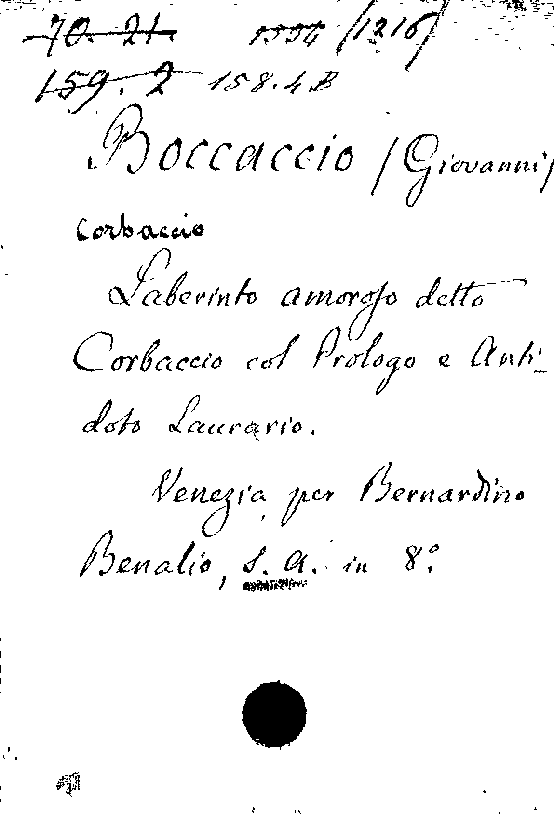 70. 21. 1334 (1216)
159. 2 158.4 B
Boccaccio (Giovanni)
Corbaccio
Laberinto amoroso detto
Corbaccio col Prologo e Anti-
doto Laurario.
Venezia, per Bernardino
Benalio, s. a. in 8.º